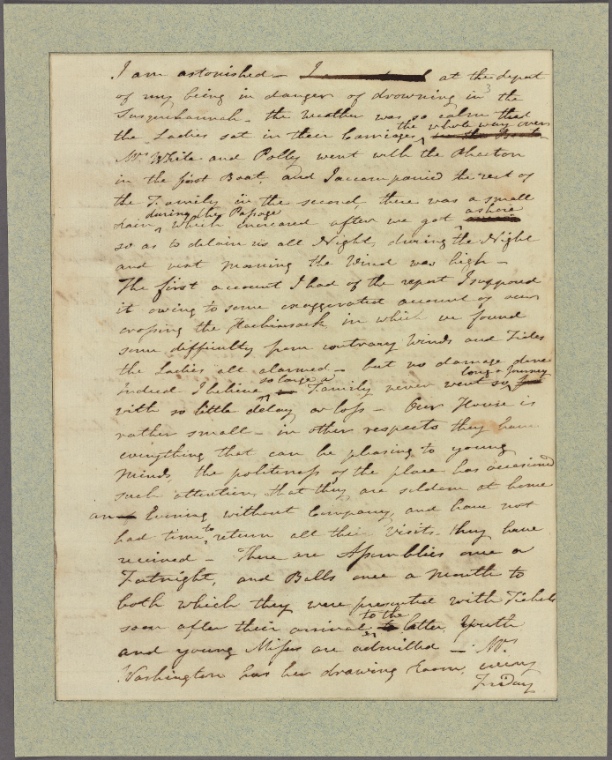 I am astonished - at the report
of my being in danger of drowning in the
Susquehannah - the weather was so calm that
the whole way over
the Ladies sat in their Carriages
Mr. White and Polly went with the Phaeton
in the first Boat, and I accompanied the rest of
the Family in the second, there was a small
during the Passage
rain, which increased after we got ashore
so as to detain us all Night, during the Night
and next morning the Wind was high -
The first account I had of the report I supposed
it owing to some exaggerated account of our
crossing the Hackinsack, in which we found
some difficulty from contrary Winds and Tides
the Ladies all alarmed - but no damage done
so large a long a Journey
Indeed I believe Family never went so
with so little delay or loss - Our House is
rather small - in other respects they have
everything that can be pleasing to young
minds, the politeness of the place has occasioned
such attention, that they are seldom at home
an Evening without Company, and have not
had time to return all their Visits they have
received - There are Assemblies once a
Fortnight, and Balls once a Month to
both which they were presented with Tickets
to the
soon after their arrival latter youth
and young Misses are admitted - Mrs
Washington has her drawing Room every
Friday